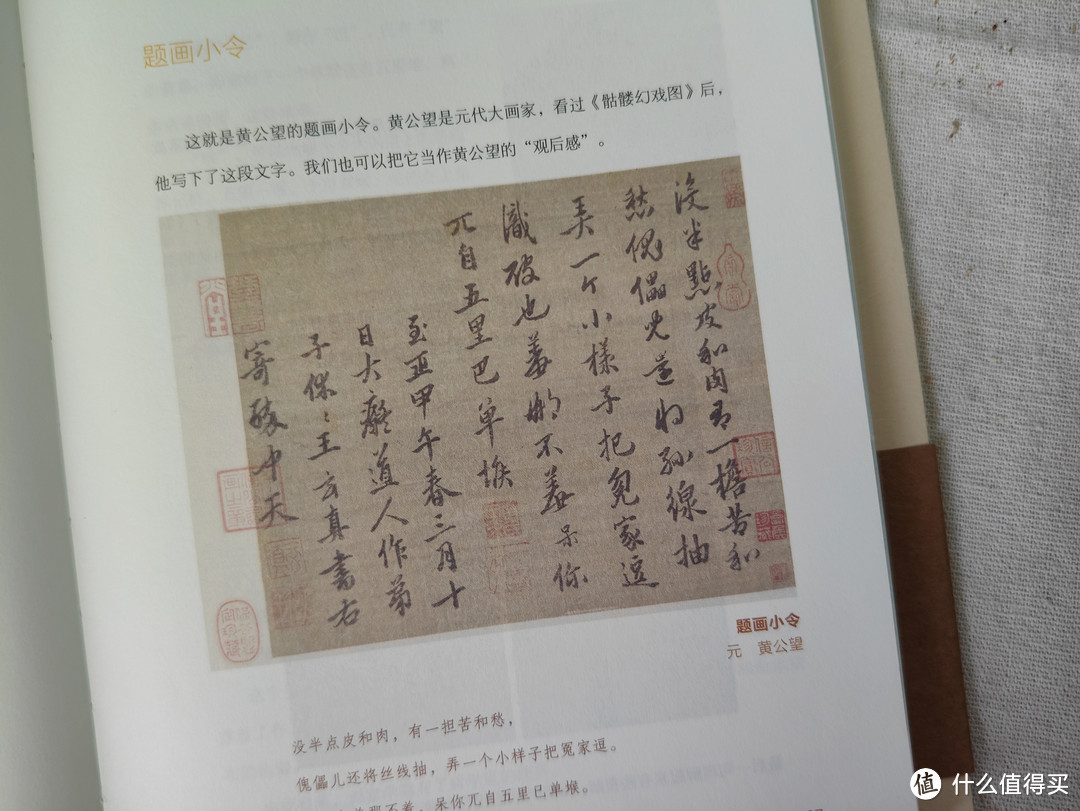 题画小令
这就是黄公望的题画小令。黄公望是元代大画家，看过《骷髅幻戏图》后，
他写下了这段文字。我们也可以把它当作黄公望的“观后感”。
沒半點皮和肉有一檐苦和
愁傀儡兒還将絲線抽
弄一个小樣子把冤家逗
識破也羞那不羞呆你
兀自五里巴單堠
至正甲午春三月十
日大癡道人作弟
子休〻王玄真書右
寄醉中天
题画小令
元 黄公望
没半点皮和肉，有一担苦和愁，
傀儡儿还将丝线抽，弄一个小样子把冤家逗。
不羞，呆你兀自五里已单堠。
值 什么值得买